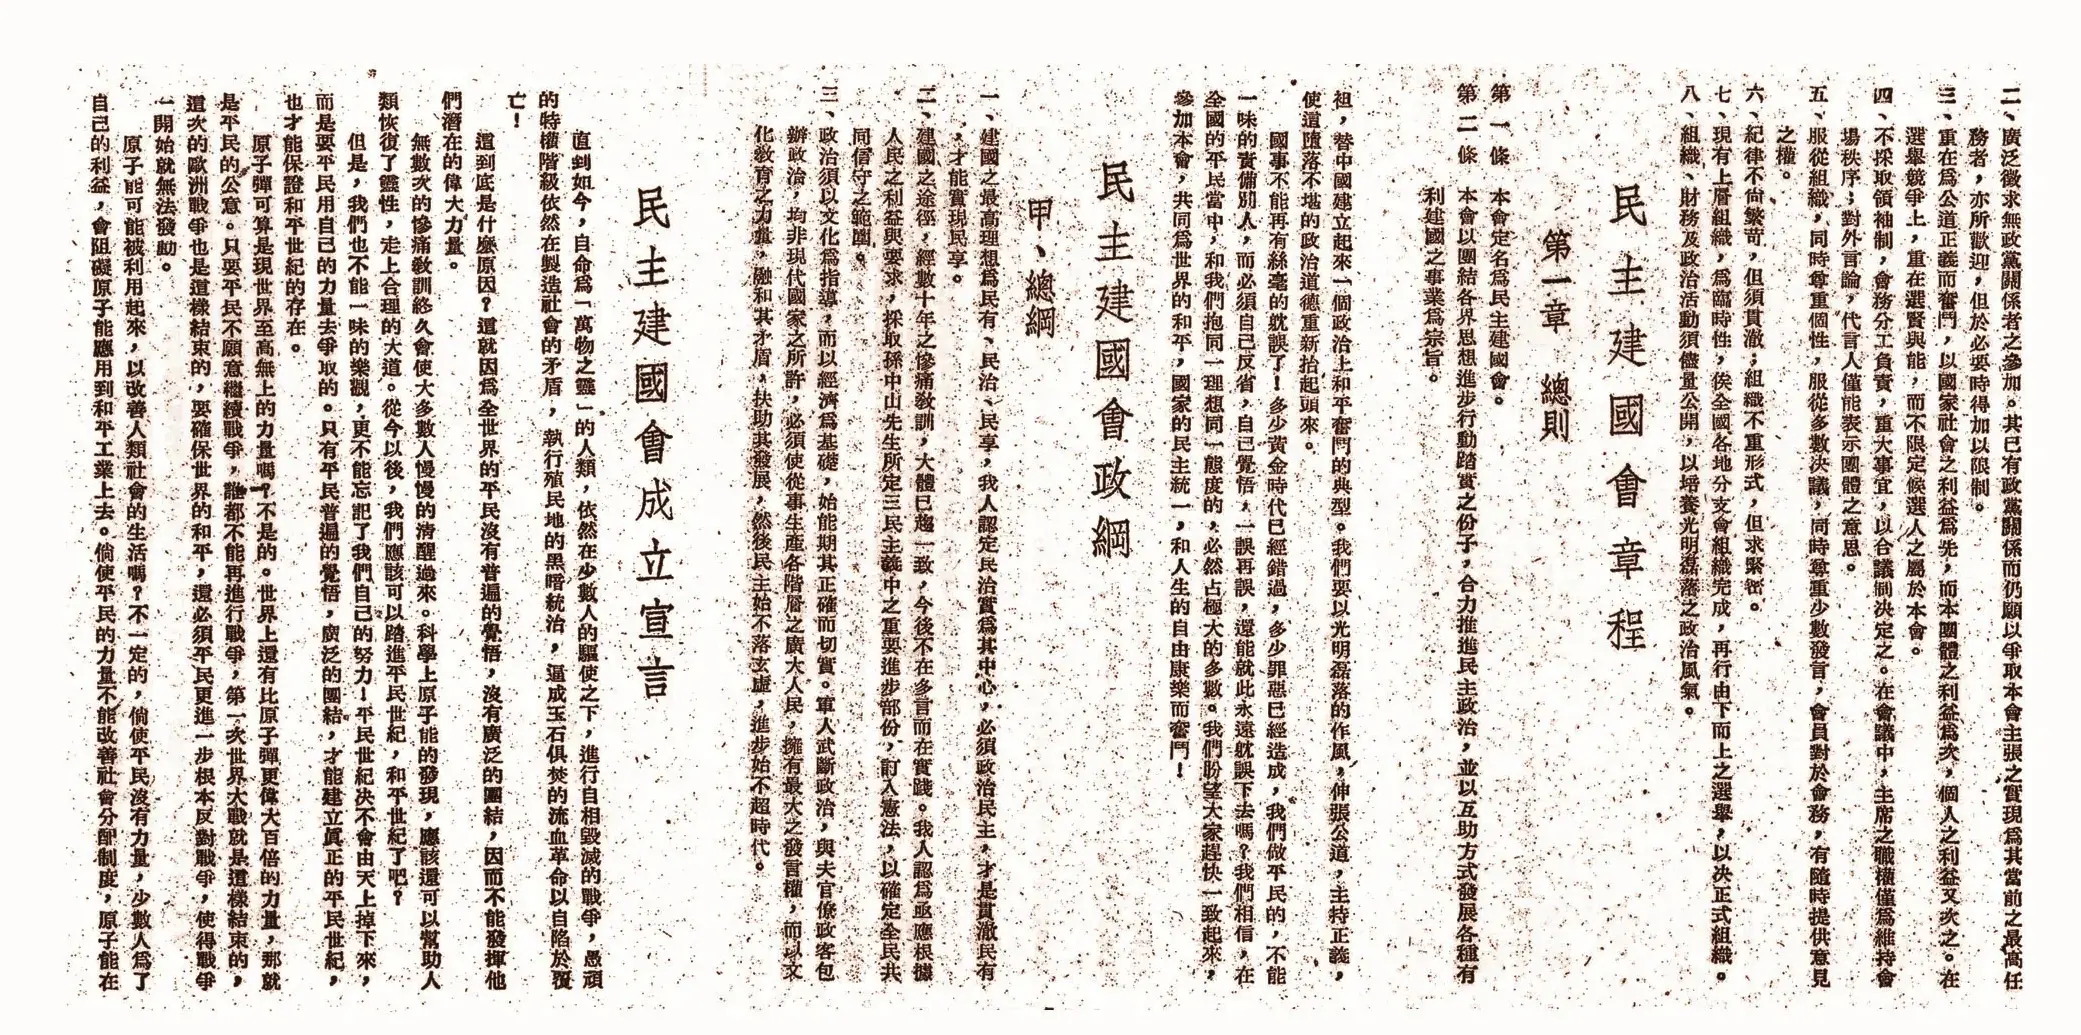 二、廣泛徵求無政黨關係者之參加。其已有政黨關係而仍願以爭取本會主張之實現爲其當前之最高任
務者，亦所歡迎，但於必要時得加以限制。
三、重在為公道正義而奮鬥，以國家社會之利益爲先，而本團體之利益爲次，個人之利益又次之。在
選舉競爭上，重在選賢與能，而不限定候選人之屬於本會。
四、不採取領袖制，會務分工負責，重大事宜，以合議制決定之。在會議中，主席之職權僅爲維持會
場秩序；對外言論，代言人僅能表示團體之意思。
五、服從組織，同時尊重個性，服從多數決議，同時尊重少數發言，會員對於會務，有隨時提供意見
之權。
六、紀律不尙繁苛，但須貫澈；組織不重形式，但求緊密。
七、現有上層組織，爲臨時性，俟全國各地分支會組織完成，再行由下而上之選舉，以決正式組織。
八、組織、財務及政治活動須儘量公開，以培養光明磊落之政治風氣。
民主建國會章程
第一章　總則
第一條　本會定名爲民主建國會。
第二條　本會以團結各界思想進步行動踏實之份子，合力推進民主政治，並以互助方式發展各種有
利建國之事業爲宗旨。
祖，替中國建立起來一個政治上和平奮鬥的典型。我們要以光明磊落的作風，伸張公道，主持正義，
使這墮落不堪的政治道德重新抬起頭來。
國事不能再有絲毫的躭誤了！多少黃金時代已經錯過，多少罪惡已經造成，我們做平民的，不能
一味的責備別人，而必須自己反省，自己覺悟，一誤再誤，還能就此永遠躭誤下去嗎？我們相信，在
全國的平民當中，和我們抱同一理想同一態度的，必然占極大的多數。我們盼望大家趕快一致起來，
參加本會，共同爲世界的和平，國家的民主統一，和人生的自由康樂而奮鬥！
民主建國會政綱
甲、總綱
一、建國之最高理想爲民有、民治、民享，我人認定民治實爲其中心，必須政治民主，才是貫澈民有
，才能實現民享。
二、建國之途徑，經數十年之慘痛教訓，大體已趨一致，今後不在多言而在實踐。我人認爲亟應根據
人民之利益與要求，採取孫中山先生所定三民主義中之重要進步部份，訂入憲法，以確定全民共
同信守之範圍。
三、政治須以文化爲指導，而以經濟爲基礎，始能期其正確而切實。軍人武斷政治，與夫官僚政客包
辦政治，均非現代國家之所許，必須使從事生產各階層之廣大人民，擁有最大之發言權，而以文
化教育之力量，融和其矛盾，扶助其發展，然後民主始不落玄虛，進步始不超時代。
民主建國會成立宣言
直到如今，自命爲「萬物之靈」的人類，依然在少數人的驅使之下，進行自相毀滅的戰爭，愚頑
的特權階級依然在製造社會的矛盾，執行殖民地的黑暗統治，逼成玉石俱焚的流血革命以自陷於覆
亡！
這到底是什麼原因？這就因爲全世界的平民沒有普遍的覺悟，沒有廣泛的團結，因而不能發揮他
們潛在的偉大力量。
無數次的慘痛敎訓終久會使大多數人慢慢的清醒過來。科學上原子能的發現，應該還可以幫助人
類恢復了靈性，走上合理的大道。從今以後，我們應該可以踏進平民世紀，和平世紀了吧？
但是，我們也不能一味的樂觀，更不能忘記了我們自己的努力！平民世紀決不會由天上掉下來，
而是要平民用自己的力量去爭取的。只有平民普遍的覺悟，廣泛的團結，才能建立眞正的平民世紀，
也才能保證和平世紀的存在。
原子彈可算是現世界至高無上的力量嗎？不是的。世界上還有比原子彈更偉大百倍的力量，那就
是平民的公意。只要平民不願意繼續戰爭，誰都不能再進行戰爭，第一次世界大戰就是這樣結束的，
這次的歐洲戰爭也是這樣結束的，要確保世界的和平，還必須平民更進一步根本反對戰爭，使得戰爭
一開始就無法發動。
原子能可能被利用起來，以改善人類社會的生活嗎？不一定的，倘使平民沒有力量，少數人爲了
自己的利益，會阻礙原子能應用到和平工業上去。倘使平民的力量不能改善社會分配制度，原子能在